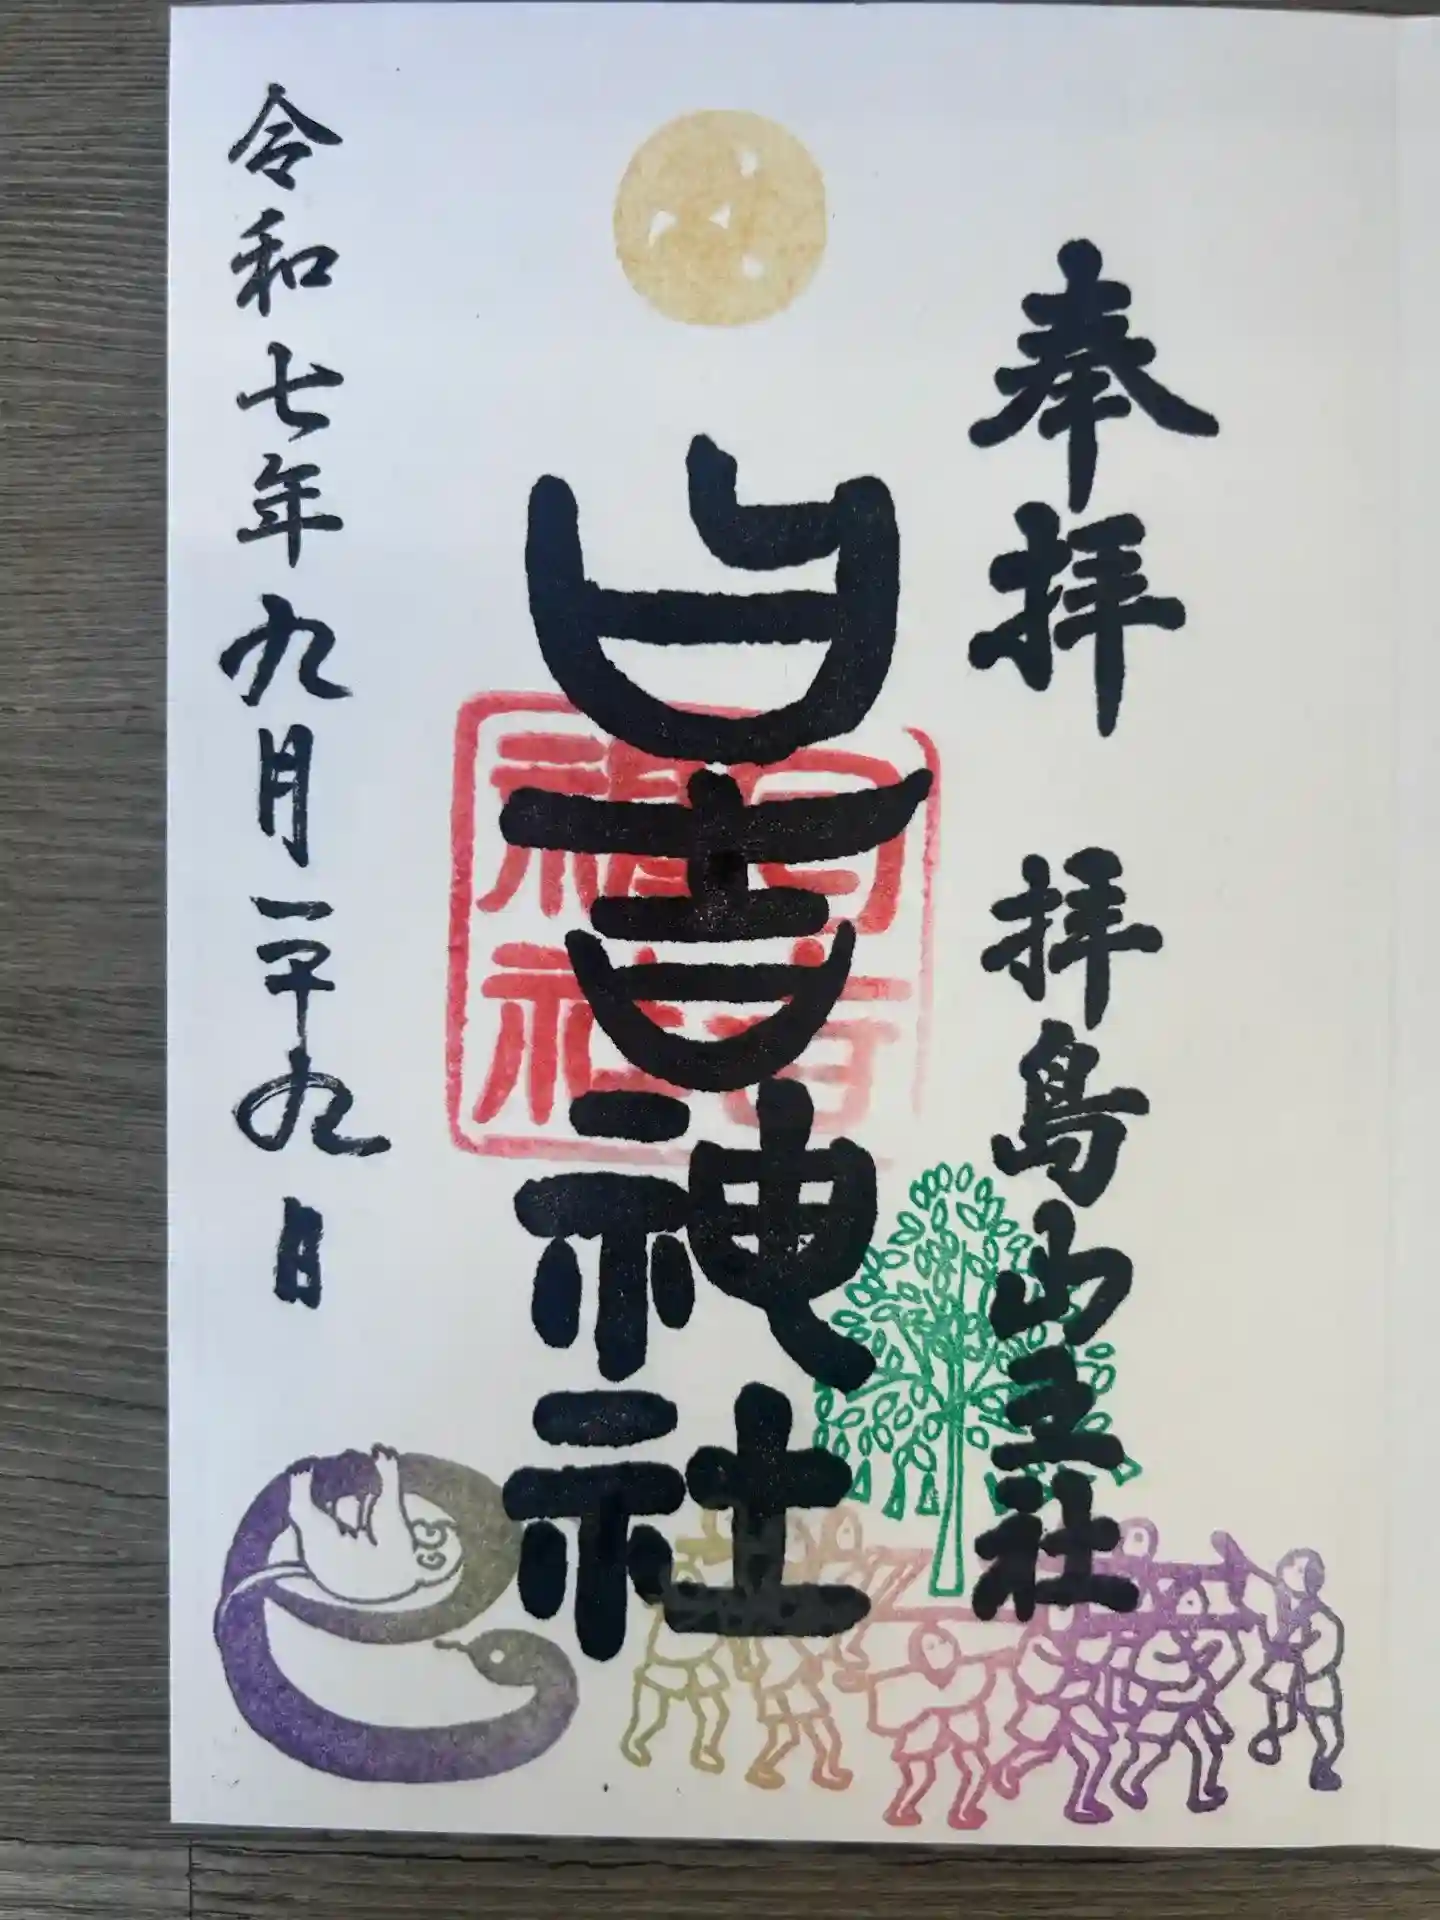 奉拝 拝島山王社
日吉神社
日吉
神社
令和七年九月二十九日